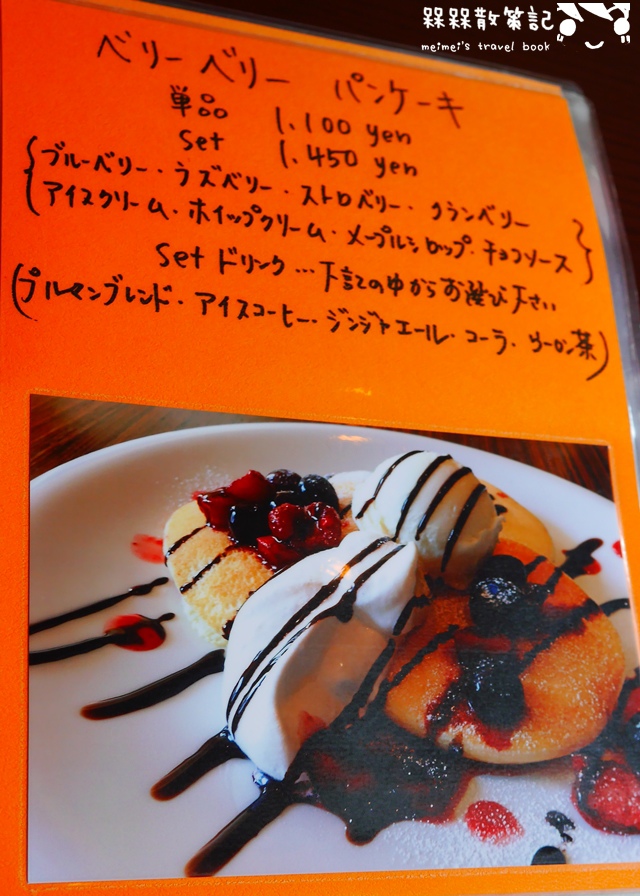 槑槑散策記
meimei's travel book
ベリーベリー パンケーキ
単品 1,100 yen
Set 1,450 yen
{ブルーベリー・ラズベリー・ストロベリー・クランベリー
アイスクリーム・ホイップクリーム・メープルシロップ・チョコソース}
Set ドリンク…下記の中からお選び下さい
(プルマンブレンド・アイスコーヒー・ジンジャエール・コーラ・ウーロン茶)